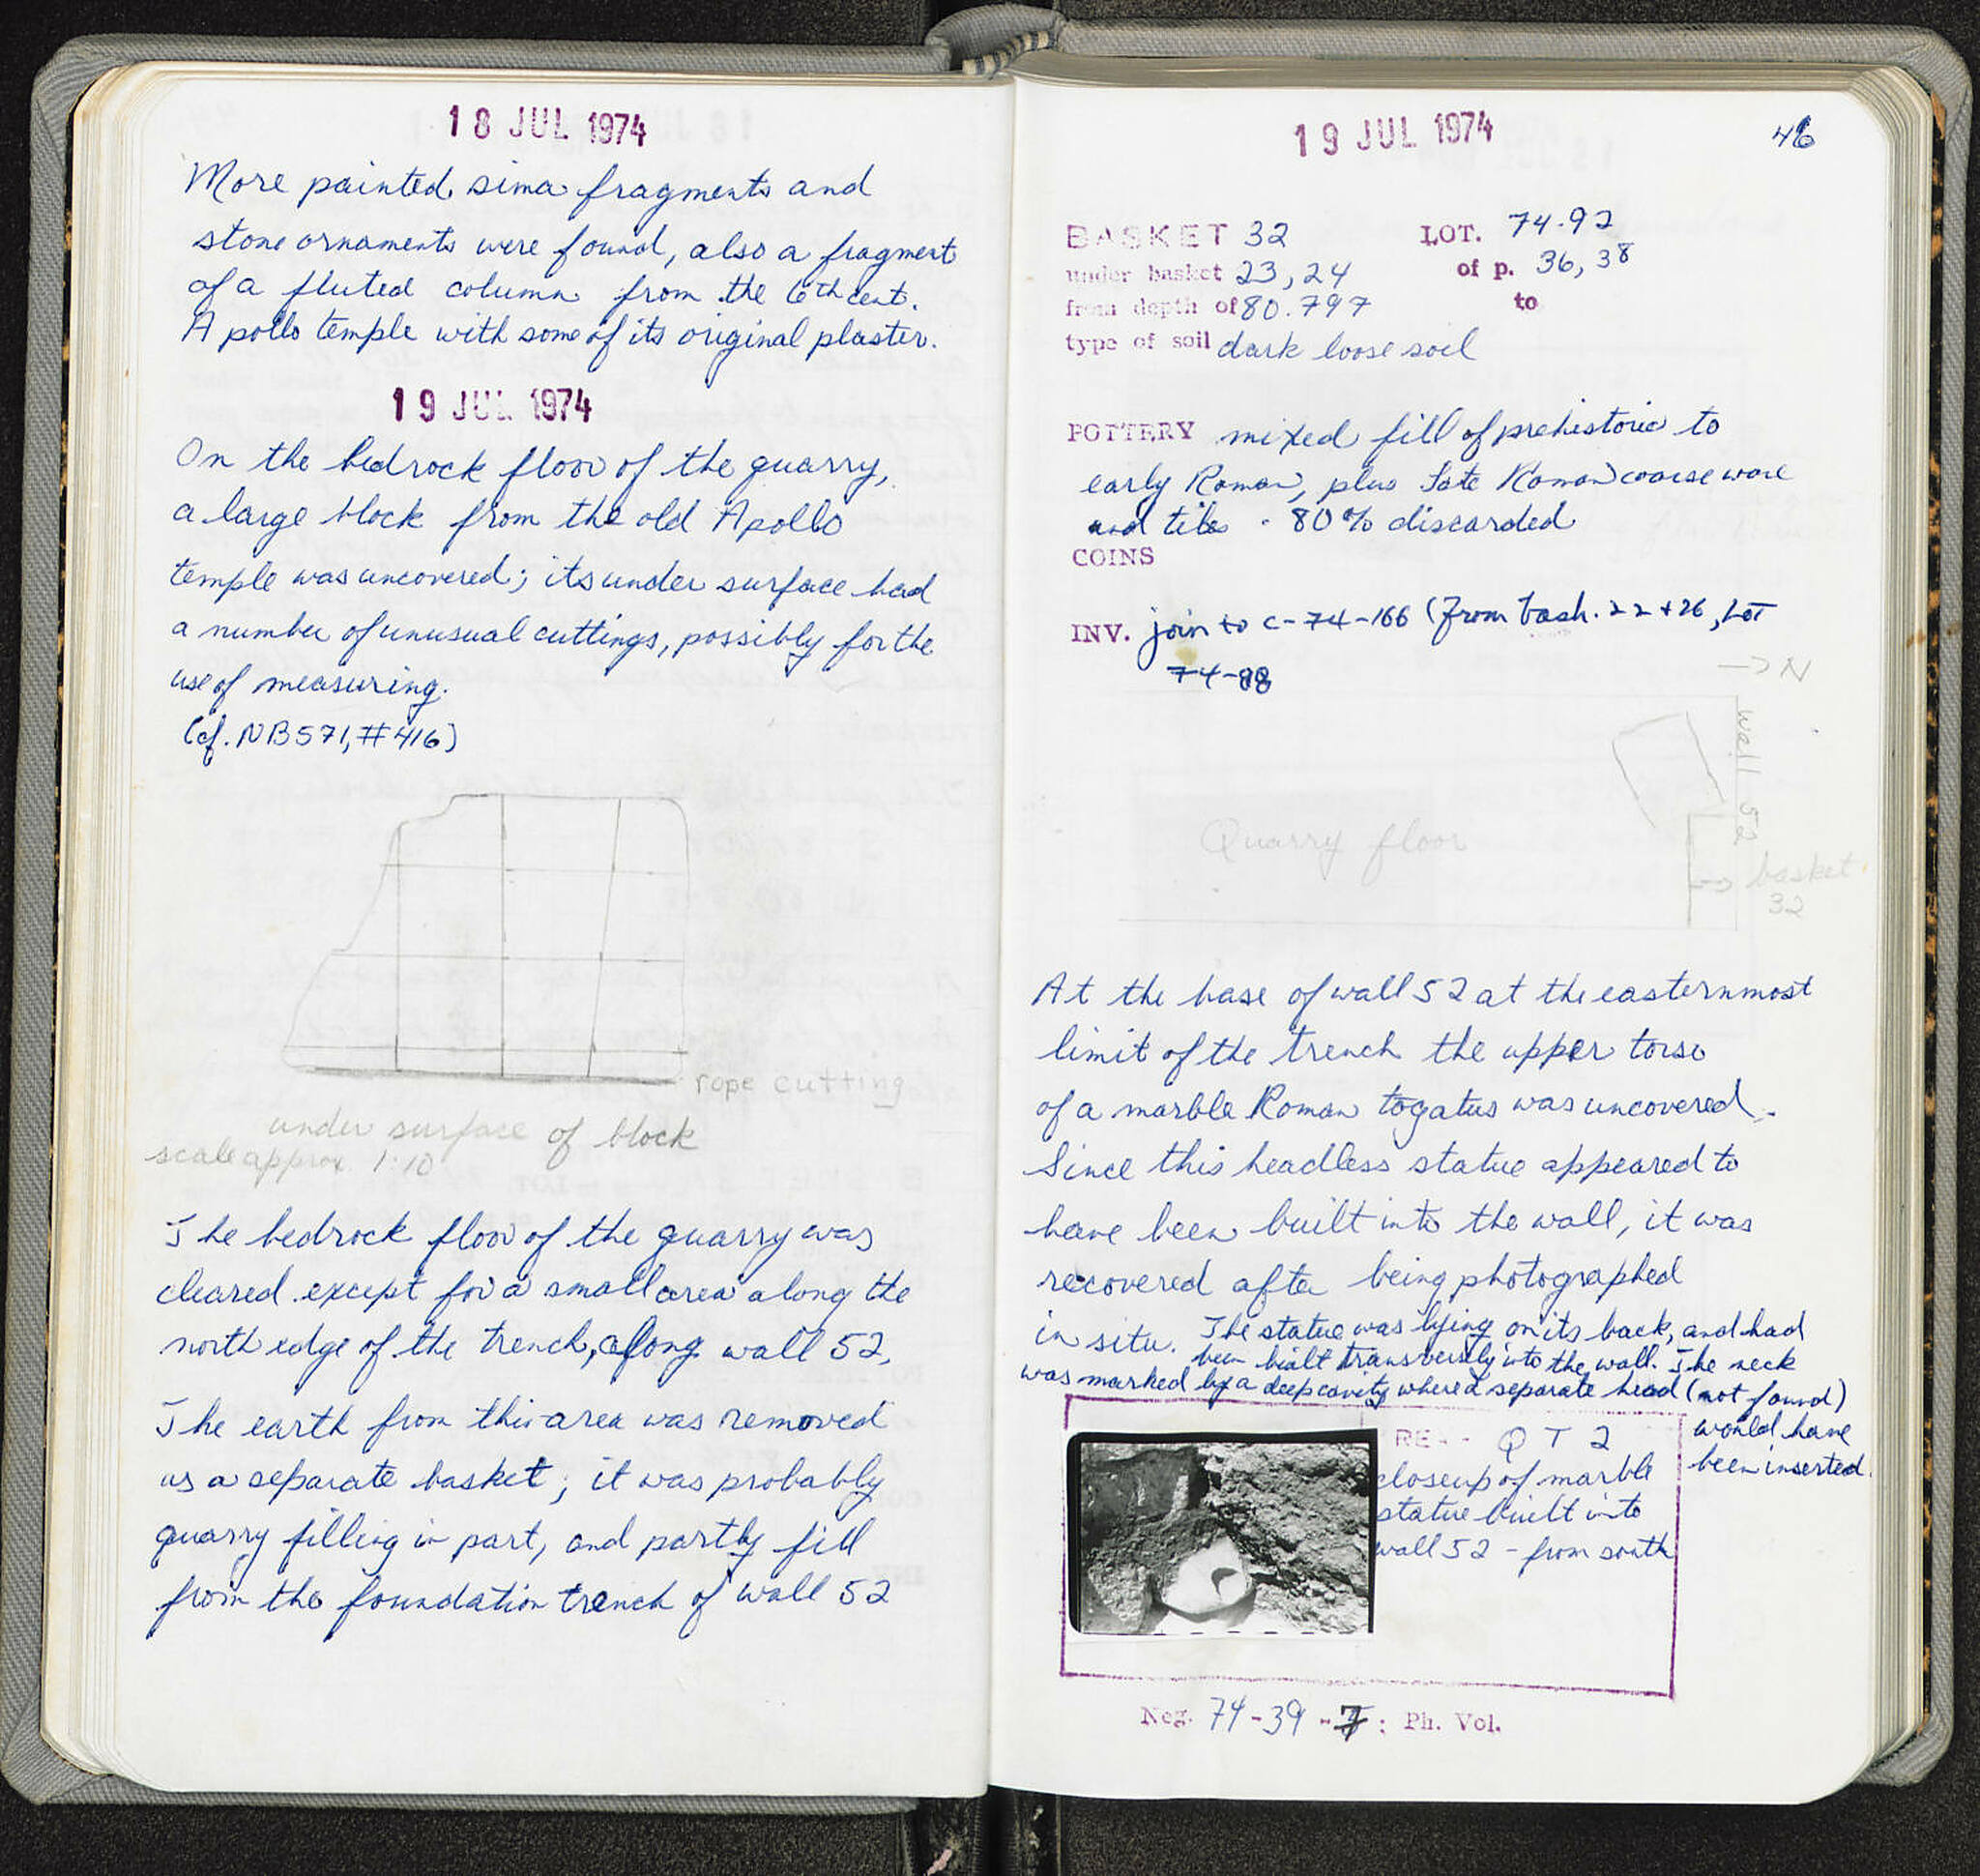 18 JUL 1974
More painted sima fragments and
stone ornaments were found, also a fragment
of a fluted column from the 6th cent.
Apollo temple with some of its original plaster.
19 JUL 1974
On the bedrock floor of the quarry,
a large block from the old Apollo
temple was uncovered; its under surface had
a number of unusual cuttings, possibly for the
use of measuring.
(cf. NB571, #416)
rope cutting
under surface of block
scale approx. 1:10
The bedrock floor of the quarry was
cleared except for a small area along the
north edge of the trench, along wall 52.
The earth from this area was removed
as a separate basket; it was probably
quarry filling in part, and partly fill
from the foundation trench of wall 52
19 JUL 1974
46
BASKET 32 LOT. 74.92
under basket 23, 24 of p. 36, 38
from depth of 80.797 to
type of soil dark loose soil
POTTERY mixed fill of prehistoric to
early Roman, plus late Roman coarse ware
and tile. 80% discarded
COINS
INV. join to C-74-166 (from bask. 22 + 26, LOT
74-88
→ N
wall 52
Quarry floor
→ basket
32
At the base of wall 52 at the easternmost
limit of the trench the upper torso
of a marble Roman togatus was uncovered.
Since this headless statue appeared to
have been built into the wall, it was
recovered after being photographed
in situ. The statue was lying on its back, and had
been built transversely into the wall. The neck
was marked by a deep cavity where a separate head (not found)
would have
been inserted.
RE-- Q T 2
closeup of marble
statue built into
wall 52 - from south
Neg. 74-39-7 : Ph. Vol.